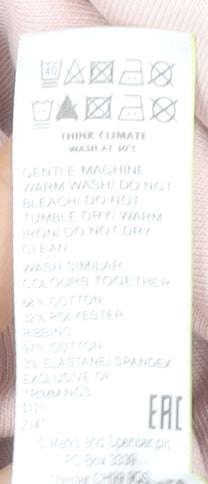 40
THINK CLIMATE
WASH AT 30°C
GENTLE MACHINE
WARM WASH/ DO NOT
BLEACH/ DO NOT
TUMBLE DRY/ WARM
IRON/ DO NOT DRY
CLEAN
WASH SIMILAR
COLOURS TOGETHER
68% COTTON
32% POLYESTER
RIBBING
97% COTTON
3% ELASTANE/ SPANDEX
EXCLUSIVE OF
TRIMMINGS
0121
EAC
© Marks and Spencer plc
PO Box 3339
Chester CH99 9QS